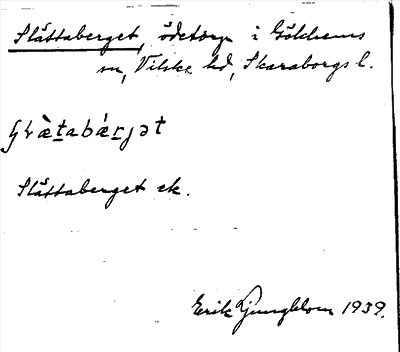 Slättaberget, ödetorp i Göteneds
sn, Vilske hd, Skaraborgs l.
Slättaberget ek.
Erik Ljungblom 1939.